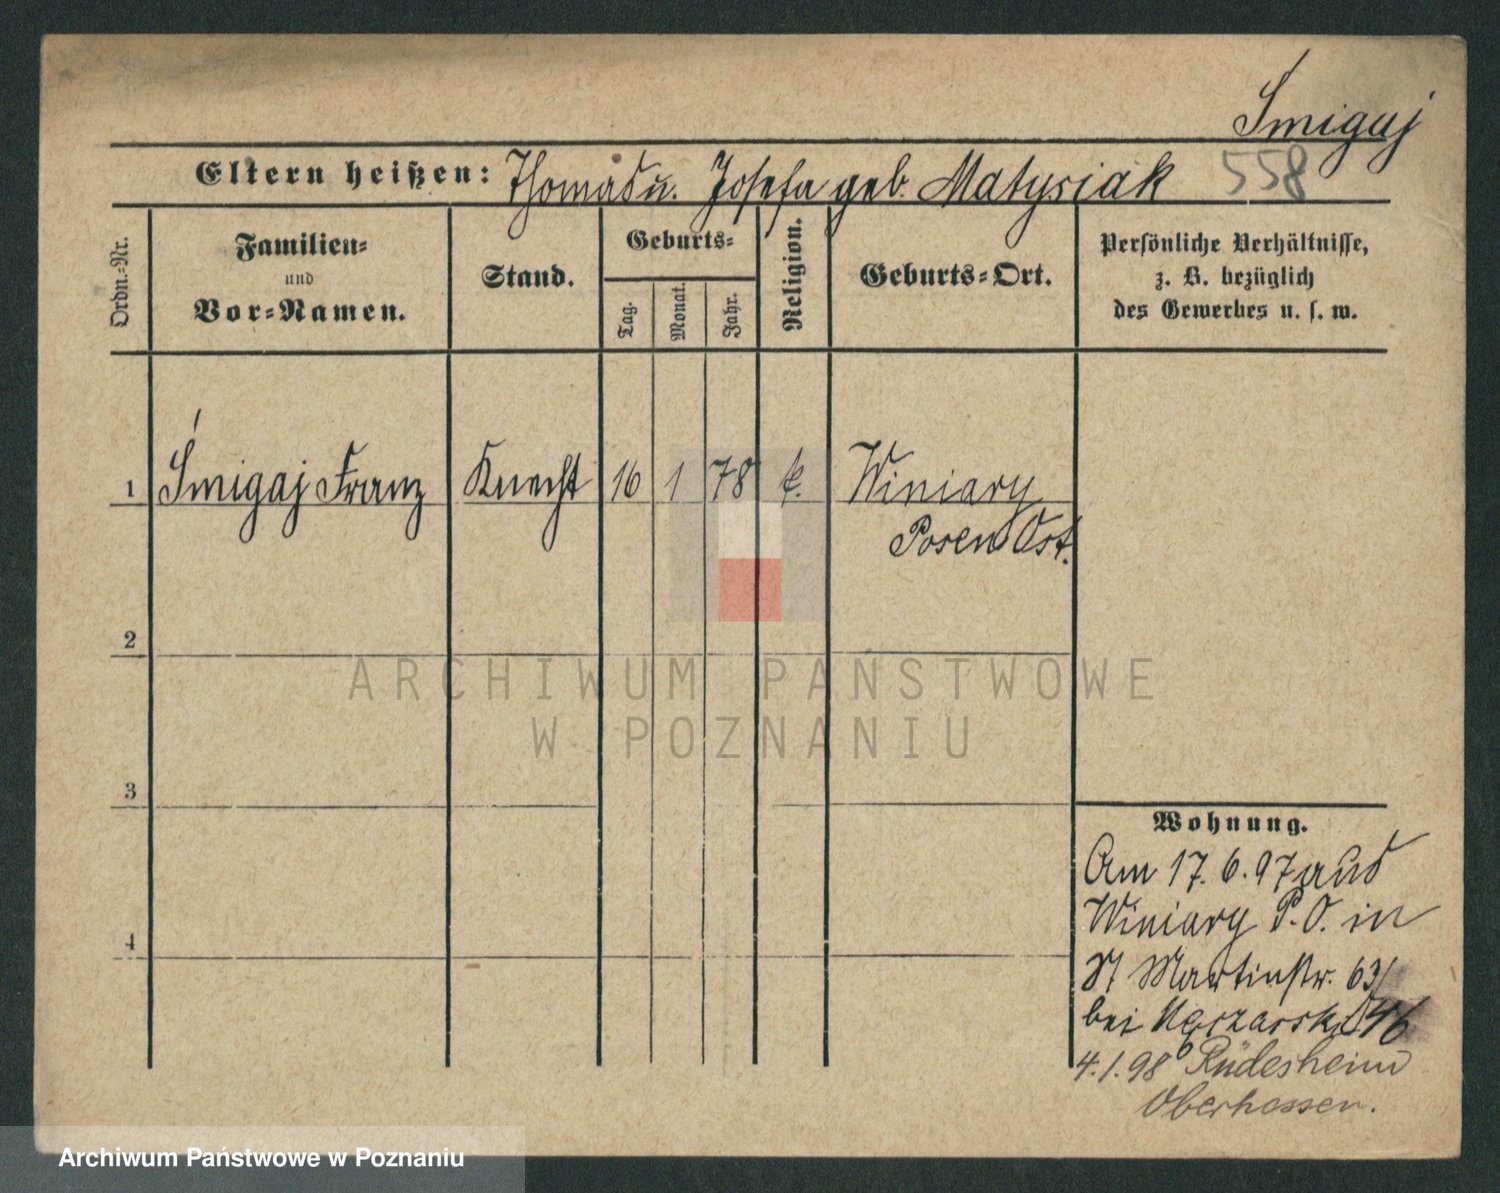 Śmigaj
Eltern heißen: Thomas u. Josefa geb. Matysiak 558
Ordn.-Nr.
Familien-
und
Vor-Namen.
Stand.
Geburts-
Tag.
Monat.
Jahr.
Religion.
Geburts-Ort.
Persönliche Verhältnisse,
z. B. bezüglich
des Gewerbes u. s. w.
1 Śmigaj Franz Knecht 16 1 78 k. Winiary
Posen Ost.
2
3
4
Wohnung.
Am 17. 6. 97 aus
Winiary P. O. in
St Martinstr. 63/
bei 46
4.1.98 Rüdesheim
Oberhessen.
ARCHIWUM PAŃSTWOWE
W POZNANIU
Archiwum Państwowe w Poznaniu